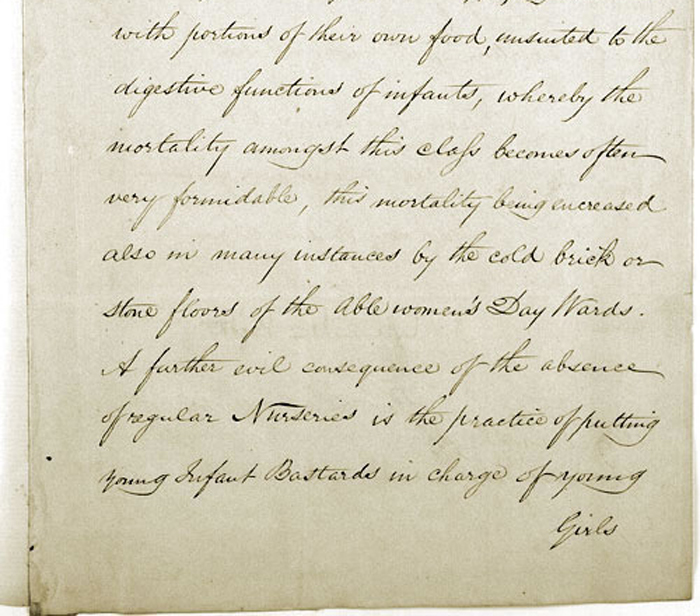 with portions of their own food, unsuited to the
digestive functions of infants, whereby the
mortality amongst this class becomes often
very formidable, this mortality being encreased
also in many instances by the cold brick or
stone floors of the Able women's Day Wards.
A further evil consequence of the absence
of regular Nurseries is the practice of putting
young Infant Bastards in charge of young
Girls